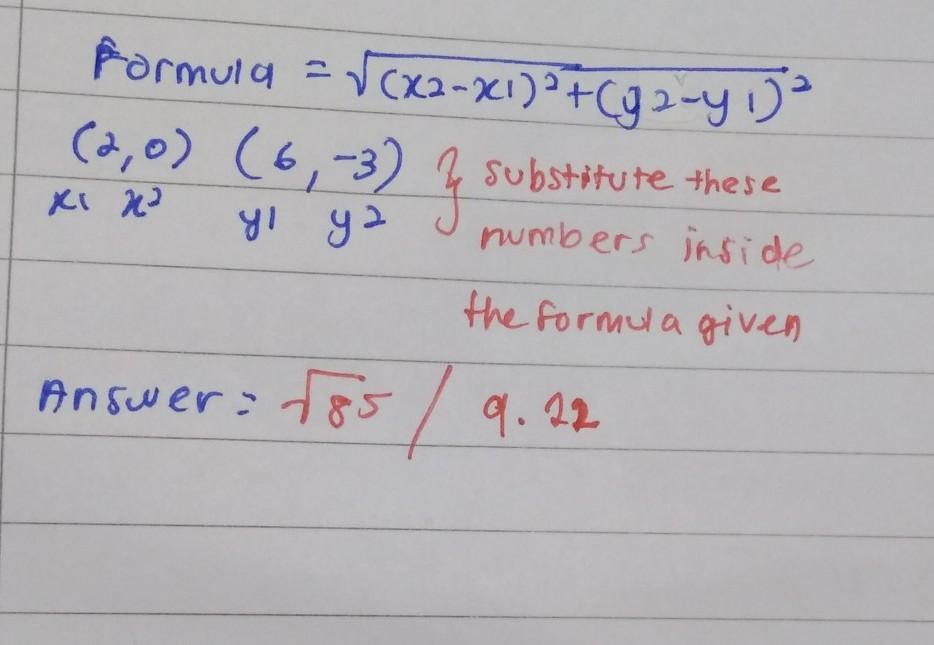 Formula = √(x2-x1)²+(y2-y1)²
(2,0) (6,-3) } substitute these
x1 x2 y1 y2 numbers inside
the formula given
Answer = √85 / 9.22